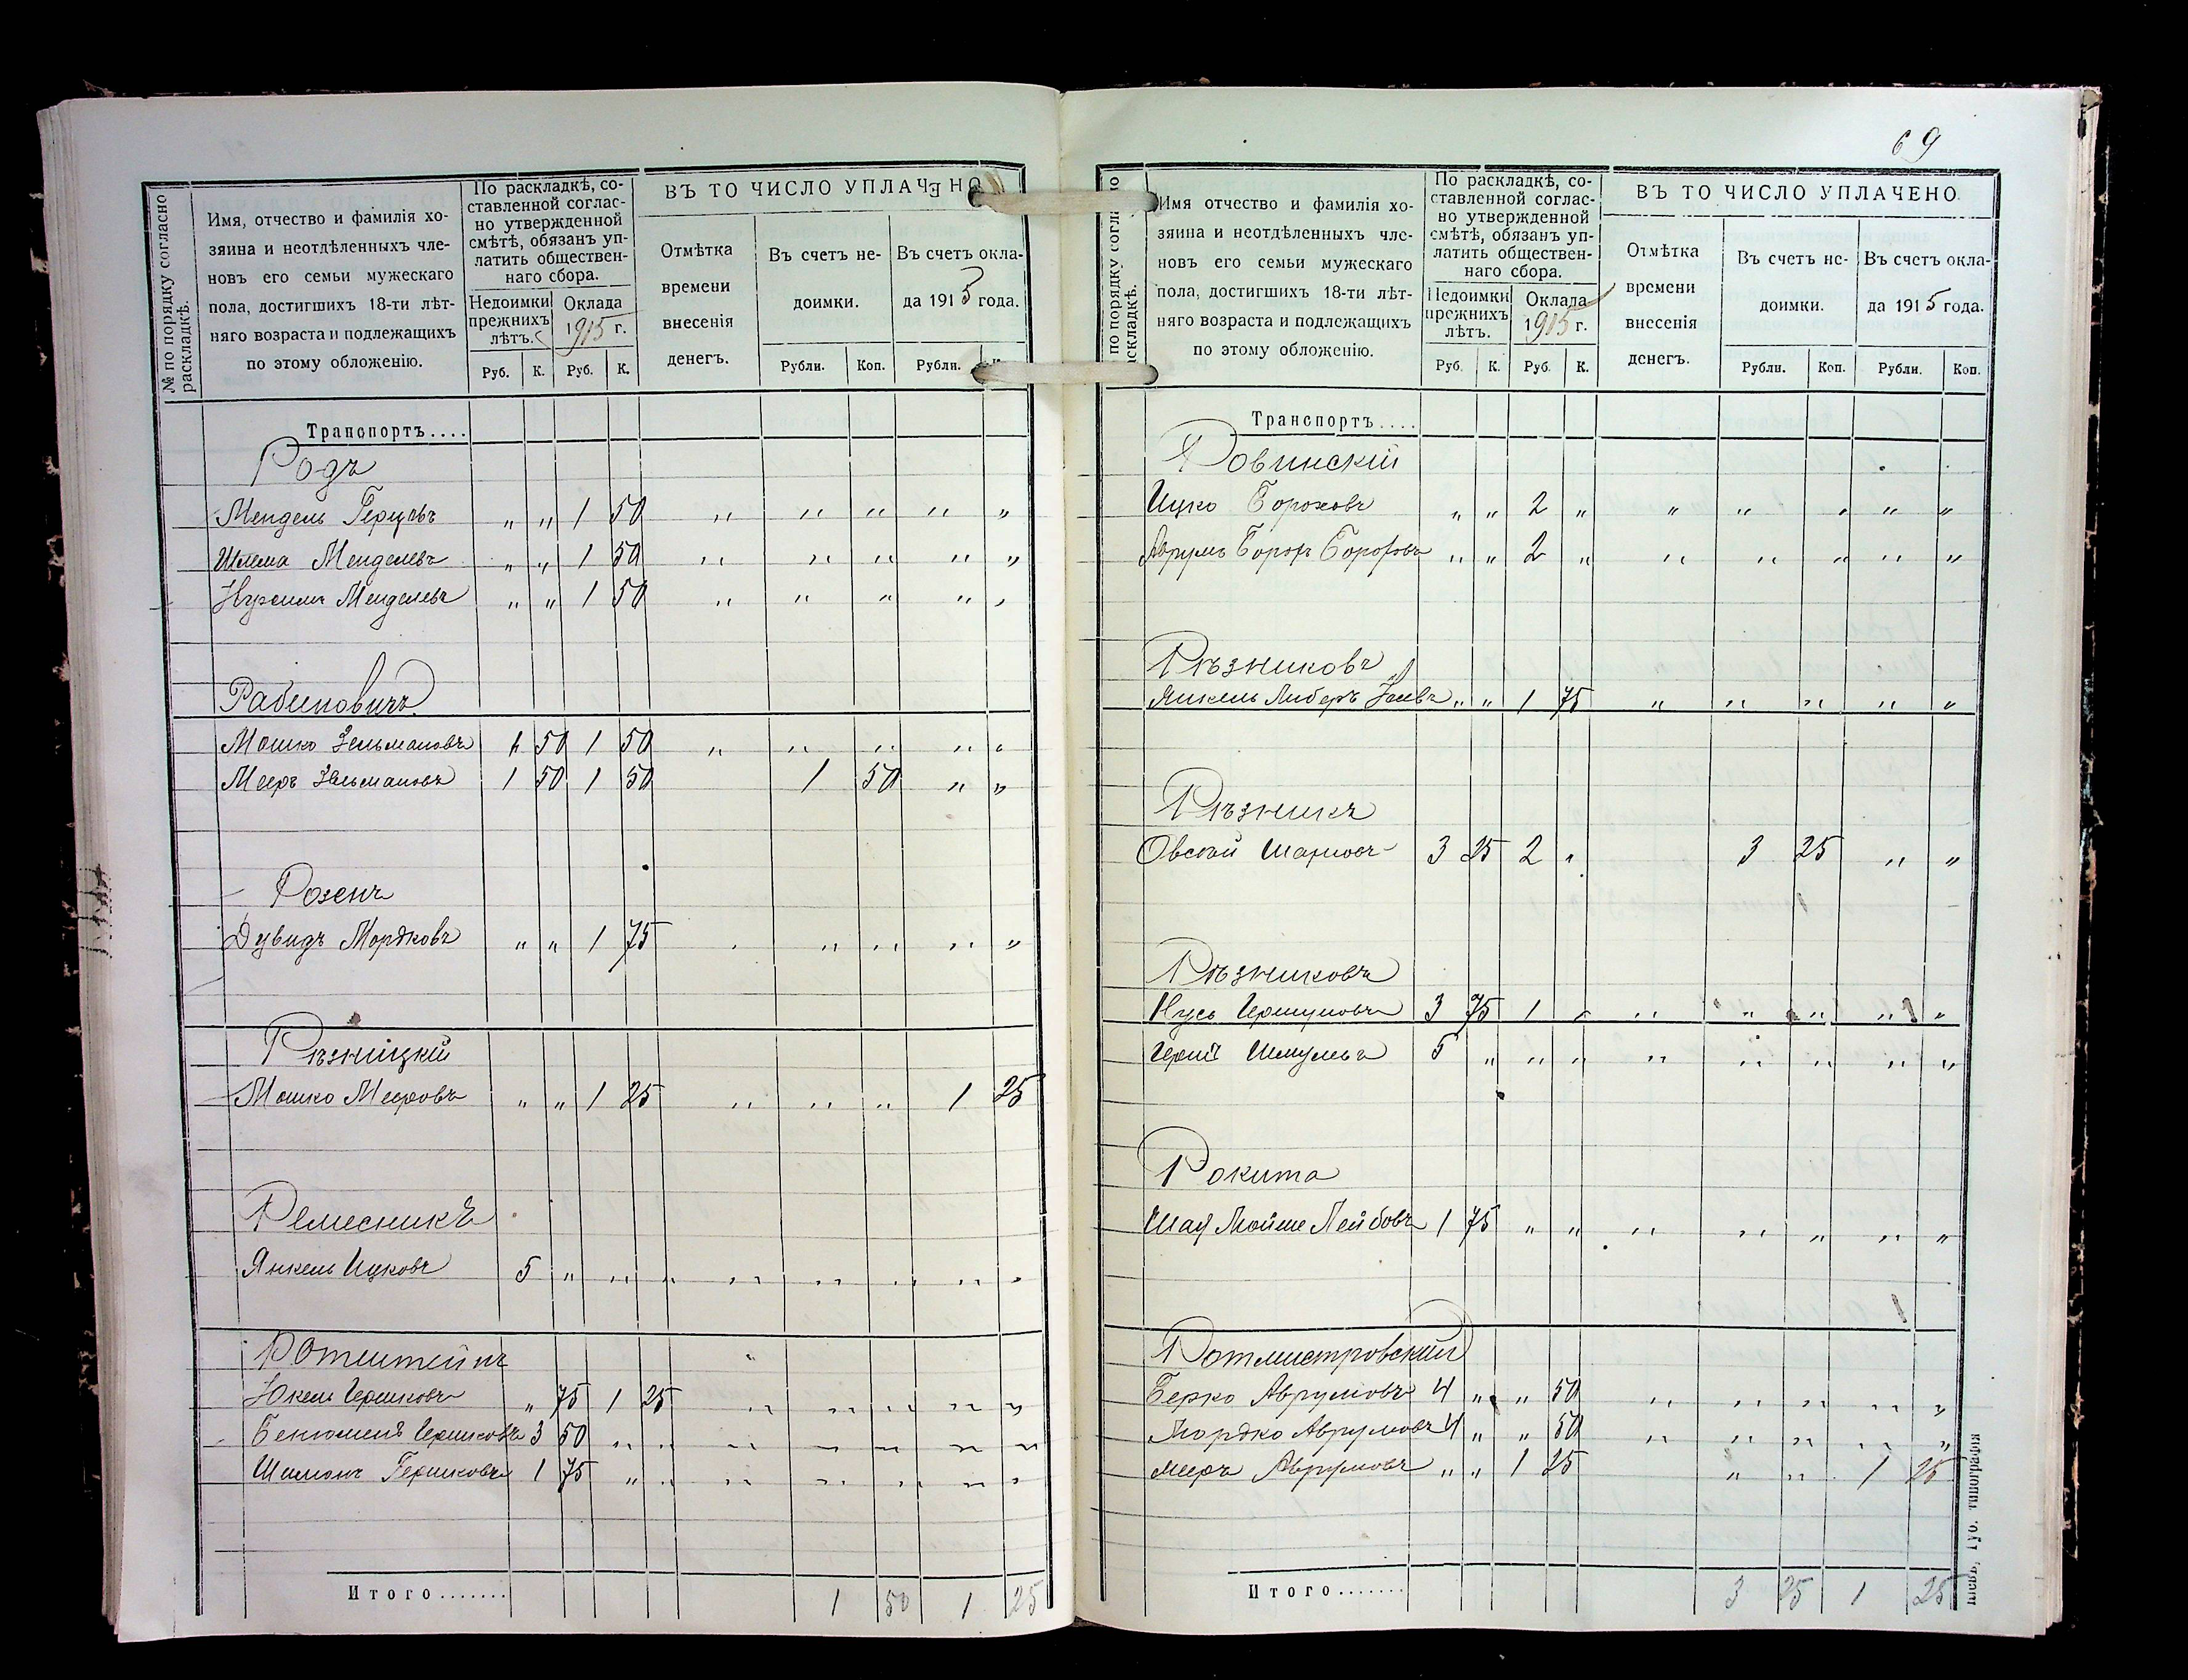 № по порядку согласно раскладкѣ.
Имя, отчество и фамилія хо-
зяина и неотдѣленныхъ чле-
новъ его семьи мужескаго
пола, достигшихъ 18-ти лѣт-
няго возраста и подлежащихъ
по этому обложенію.
По раскладкѣ, со-
ставленной соглас-
но утвержденной
смѣтѣ, обязанъ уп-
латить обществен-
наго сбора.
Недоимки прежнихъ лѣтъ.
Оклада 1915 г.
Руб. К. Руб. К.
ВЪ ТО ЧИСЛО УПЛАЧЕНО
Отмѣтка
времени
внесенія
денегъ.
Въ счетъ не-
доимки.
Въ счетъ окла-
да 1915 года.
Рубли. Коп. Рубли.
Транспортъ....
Родъ
Мендель Герцовъ " " 1 50 " " " " "
Шлема Менделевъ " " 1 50 " " " " "
Нухимъ Менделевъ " " 1 50 " " " " "
Рабиновичъ
Мошко Зельмановъ 1 50 1 50 " " " " "
Мееръ Зельмановъ 1 50 1 50 1 50 " "
Розенъ
Дувидъ Мордковъ " " 1 75 " " " " "
Рѣзницкій
Мошко Мееровъ " " 1 25 " " " 1 25
Ремесникъ
Янкель Ицковъ 5 " " " " " " " "
Ротштейнъ
Юкель Гершковъ " 75 1 25 " " " " "
Бенюменъ Гершковъ 3 50 " " " " " " "
Шимонъ Гершковъ 1 75 " " " " " " "
Итого....... 1 50 1 25
69
по порядку согласно раскладкѣ.
Имя отчество и фамилія хо-
зяина и неотдѣленныхъ чле-
новъ его семьи мужескаго
пола, достигшихъ 18-ти лѣт-
няго возраста и подлежащихъ
по этому обложенію.
По раскладкѣ, со-
ставленной соглас-
но утвержденной
смѣтѣ, обязанъ уп-
латить обществен-
наго сбора.
Недоимки прежнихъ лѣтъ.
Оклада 1915 г.
Руб. К. Руб. К.
ВЪ ТО ЧИСЛО УПЛАЧЕНО
Отмѣтка
времени
внесенія
денегъ.
Въ счетъ не-
доимки.
Въ счетъ окла-
да 1915 года.
Рубли. Коп. Рубли. Коп.
Транспортъ....
Ровинскій
Ицко Бороховъ " " 2 " " " " " "
Аврумъ Борохъ Бороховъ " " 2 " " " " " "
Рѣзниковъ
Янкель Либеръ " " 1 75 " " " " "
Рѣзникъ
Овсей 3 25 2 " 3 25 " "
Рѣзниковъ
Нусь 3 75 1 " " " " " "
Шмулевъ 5 " " " " " " " "
Рокита
Шая Мойше Лейбовъ 1 75 " " " " " " "
Ротмистровскій
Берко Аврумовъ 4 " " 50 " " " " "
Мордко Аврумовъ 4 " " 50 " " " " "
Мееръ Аврумовъ " " 1 25 " " 1 25
Итого....... 3 25 1 25
Кіевъ, Губ. типографія